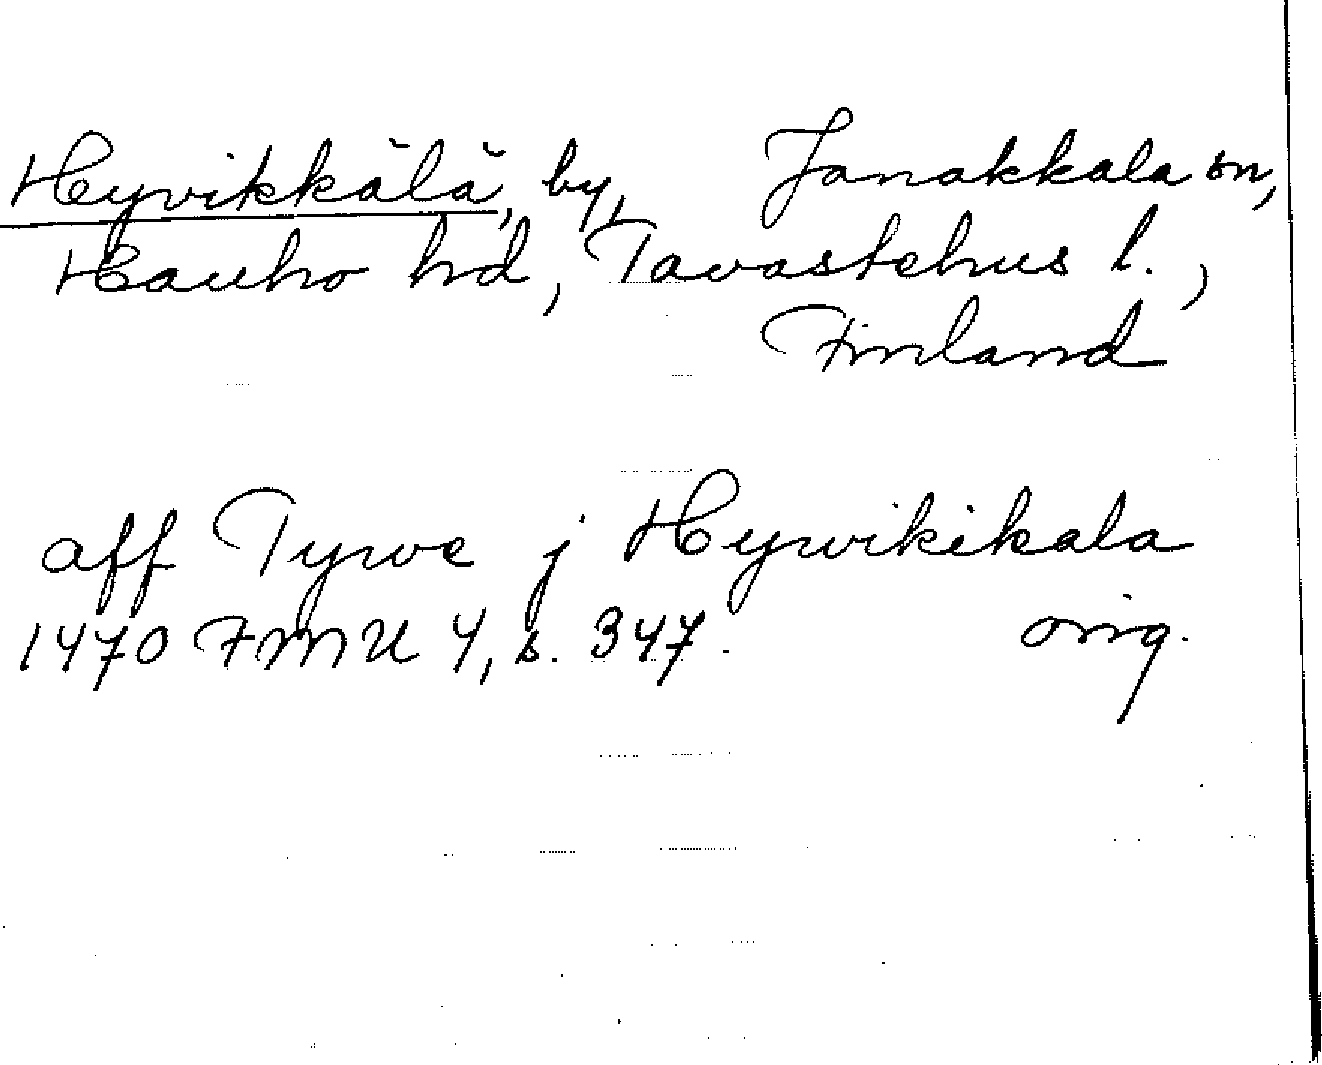 Hyvikkälä, by, Janakkala sn,
Hauho hd, Tavastehus l.,
Finland
aff Tyrwe j Hyrwikikala
1470 FMU 4, s. 347. orig.